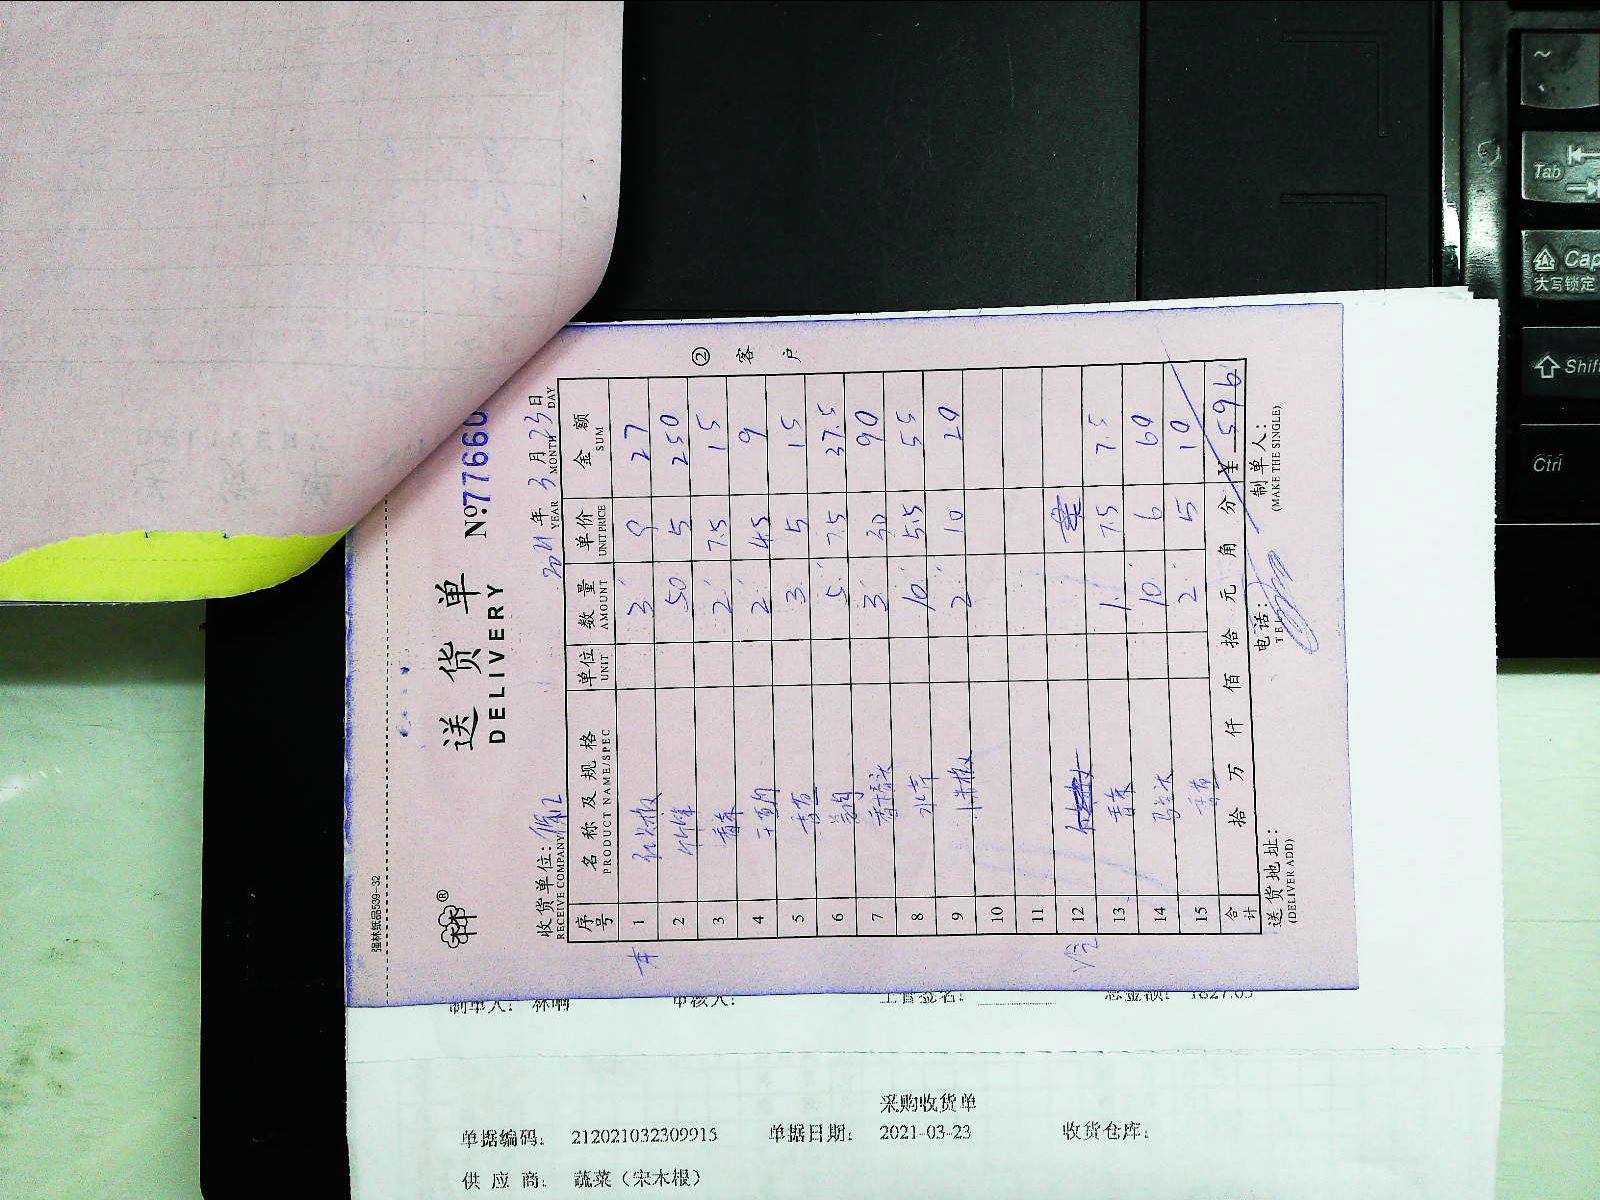 强林纸品539-32
送货单 No77660
DELIVERY
收货单位: 2021年3月23日
RECEIVE COMPANY YEAR MONTH DAY
② 客户
序号 名称及规格 单位 数量 单价 金额
PRODUCT NAME/SPEC UNIT AMOUNT UNIT PRICE SUM
1 3 9 27
2 50 5 250
3 香菜 2 7.5 15
4 2 4.5 9
5 3 5 15
6 5 7.5 37.5
7 3 30 90
8 10 5.5 55
9 2 10 20
10
11
12
13 香菜 1 7.5 7.5
14 10 6 60
15 2 5 10
合计 拾 万 仟 佰 拾 元 角 分 ¥ 596
送货地址: 电话: 制单人:
(DELIVER ADD) TEL (MAKE THE SINGLE)
制单人: 审核人: 主管签名: 总金额: 1827.05
采购收货单
单据编码: 212021032309915 单据日期: 2021-03-23 收货仓库:
供应商: 蔬菜(宋木根)
~
Tab
Cap
大写锁定
Shift
Ctrl